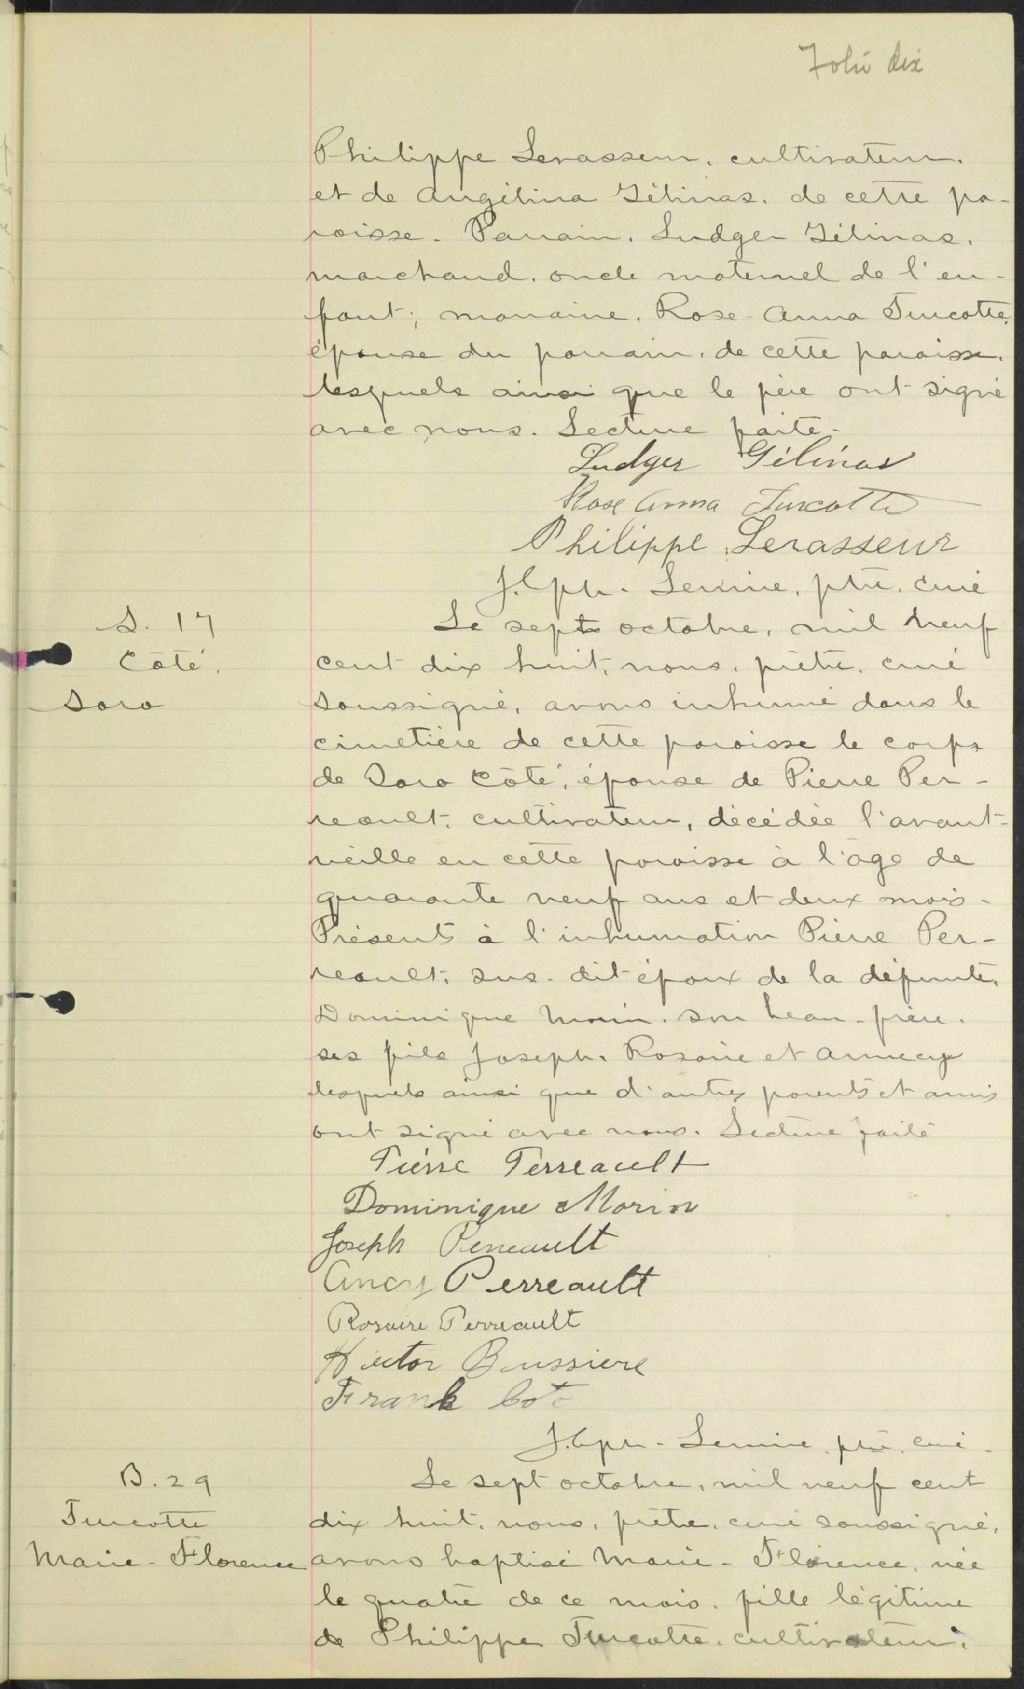 Folio dix
Philippe Levasseur, cultivateur,
et de Angélina Gélinas, de cette pa-
roisse. Parrain, Ludger Gélinas,
marchand, oncle maternel de l'en-
fant; marraine, Rose-Anna Turcotte,
épouse du parrain, de cette paroisse,
lesquels ainsi que le père ont signé
avec nous. Lecture faite.
Ludger Gélinas
Rose Anna Turcotte
Philippe Levasseur
J. Eph. Lemire, ptre, curé
S. 17
Côté,
Sara
Le sept octobre, mil neuf
cent dix huit, nous, prêtre, curé
soussigné, avons inhumé dans le
cimetière de cette paroisse le corps
de Sara Côté, épouse de Pierre Per-
reault, cultivateur, décédée l'avant-
veille en cette paroisse à l'âge de
quarante neuf ans et deux mois.
Présents à l'inhumation Pierre Per-
reault, sus-dit époux de la défunte,
Dominique Morin, son beau-frère,
ses fils Joseph, Rosaire et
lesquels ainsi que d'autres parents et amis
ont signé avec nous. Lecture faite
Pierre Perreault
Dominique Morin
Joseph Perreault
Ancy Perreault
Rosaire Perreault
Hector Bussiere
Frank Cote
J. Eph. Lemire, ptre, curé.
B. 29
Turcotte
Marie-Florence
Le sept octobre, mil neuf cent
dix huit, nous, prêtre, curé soussigné,
avons baptisé Marie-Florence, née
le quatre de ce mois, fille légitime
de Philippe Turcotte, cultivateur,